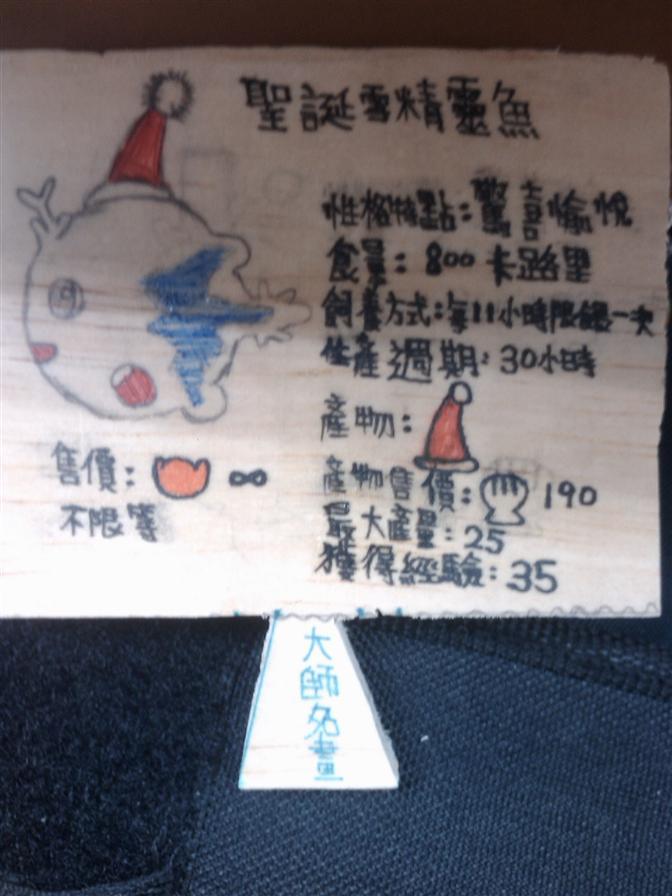 聖誕雪精靈魚
性格特點:驚喜愉悅
食量:800卡路里
飼養方式:每11小時限餵一次
生產週期:30小時
產物:
產物售價: 190
最大產量:25
獲得經驗:35
售價: ∞
不限等
大師名畫